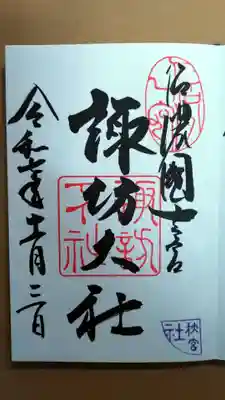 信濃國一之宮
諏訪大社
諏訪大社
令和六年十一月三日
秋宮
社